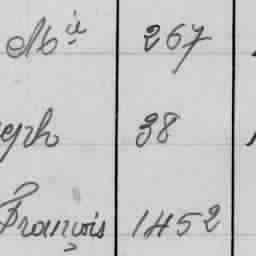 Mⁱᵉ 267
eph 38
François 1452